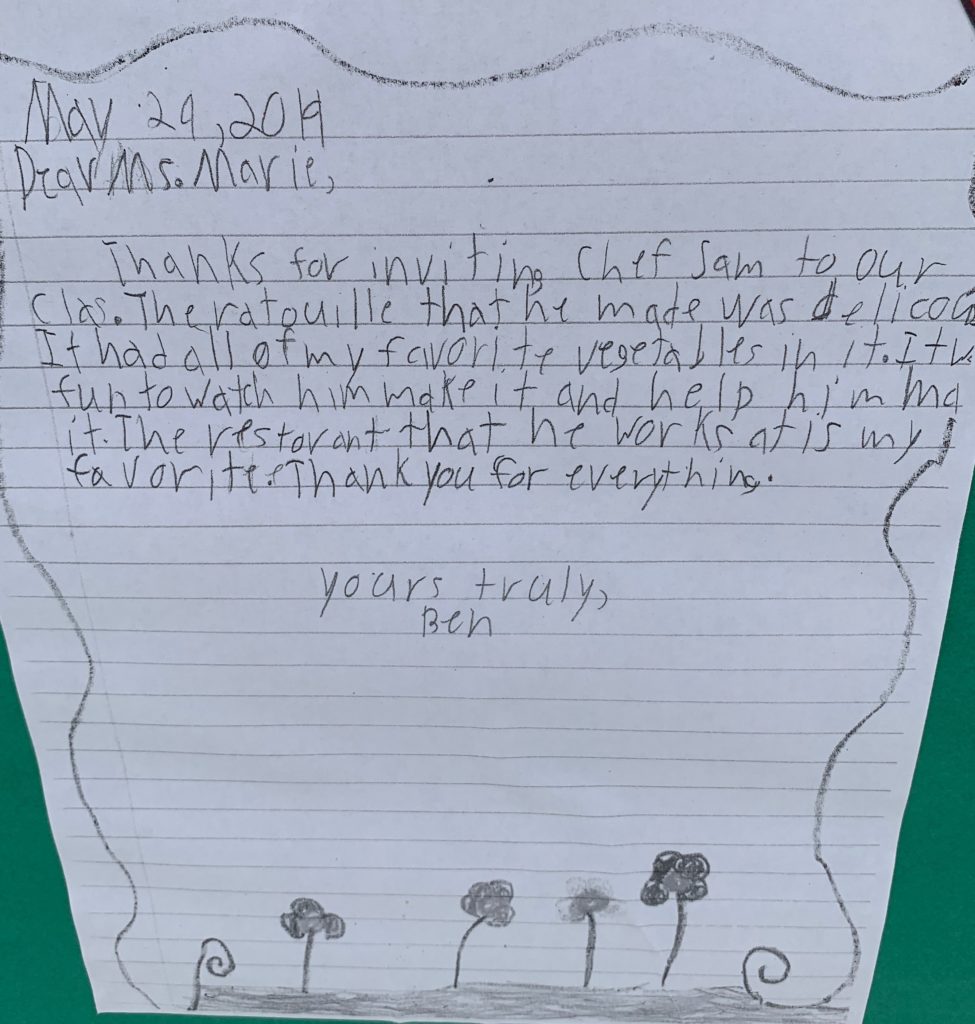 May 29, 2019
Dear Ms. Marie,
Thanks for inviting Chef Sam to our
Clas. The ratouille that he made was
It had all of my favorite vegetables in it. It
fun to watch him make it and help him
it. The restorant that he works at is my
favorite. Thank you for everything.
yours truly,
Ben